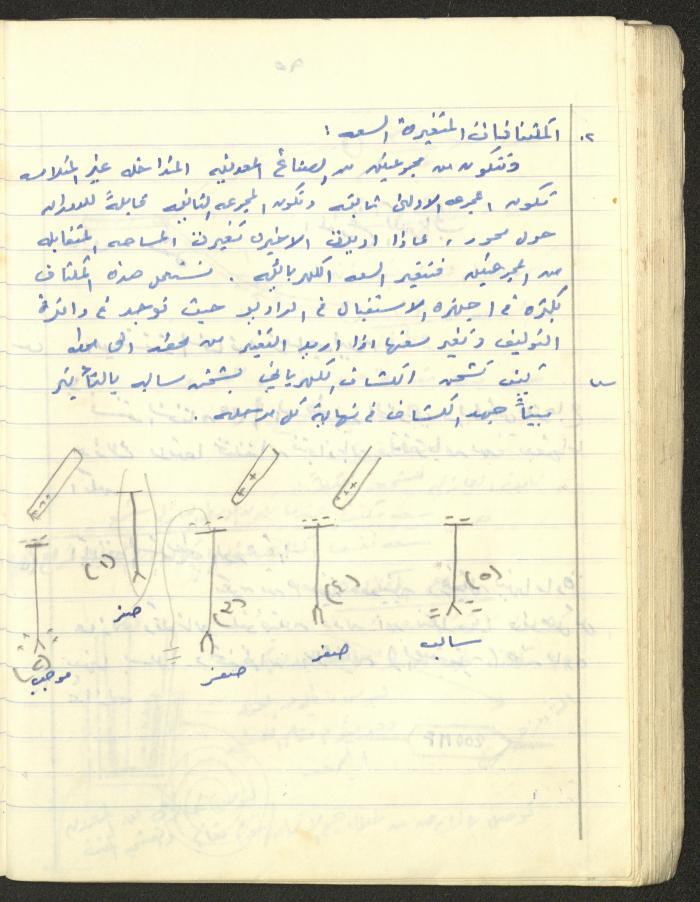 ٩٥
٢. المكثفات المتغيرة السعه :
وتتكون من مجموعتين من الصفائح المعدنيه المتداخله غير المتلامسه
تكون المجموعه الاولى ثابته وتكون المجموعه الثانيه قابلةً للدوران
حول محور ، فاذا اديرت الاخيرة تغيرت المساحه المتقابله
من المجموعتين فتتغير السعه الكهربائيه . تستعمل هذه المكثفات
بكثره في اجهزه الاستقبال في الراديو حيث توجد في دائرة
التوليف وتغير سعتها اذا اريد التغير من محطه الى محطه
س كيف تشحن الكشاف الكهربائي بشحنه سالبه بالتأثير
مبيناً جهد الكشاف في نهاية كل مرحله .
(١) صفر
(٢) موجب
(٣) صفر
(٤) صفر
(٥) سالب